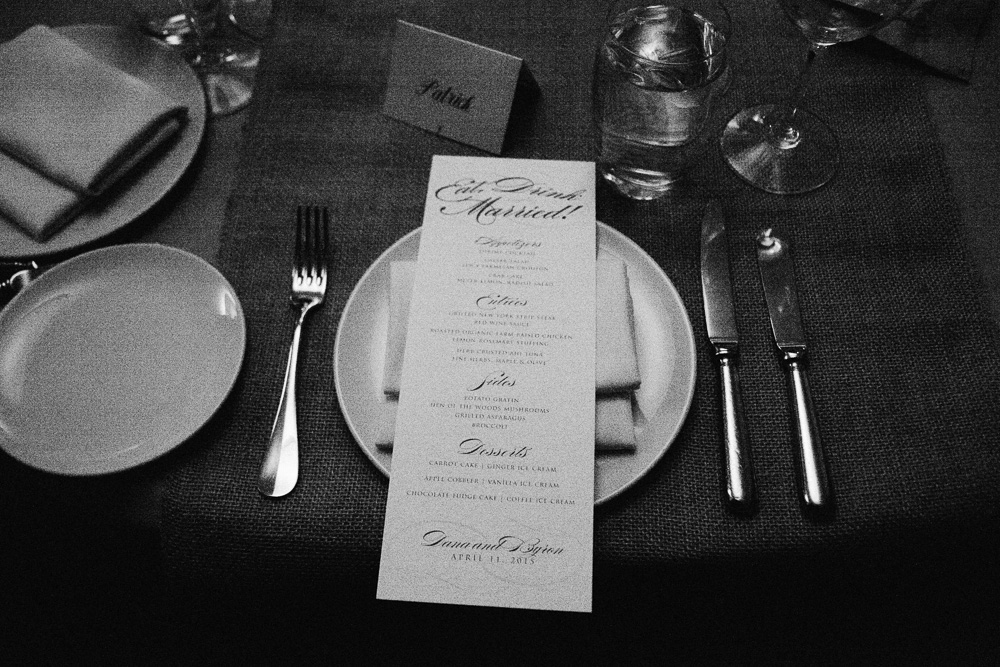 Patrick
Eat, Drink
Married!
Appetizers
SHRIMP COCKTAIL
CAESAR SALAD
LOCA PARMESAN CROUTON
CRAB CAKE
MEYER LEMON, RADISH SALAD
Entrées
GRILLED NEW YORK STYLE STEAK
RED WINE SAUCE
ROASTED ORGANIC FARM RAISED CHICKEN
LEMON ROSEMARY STUFFING
HERB CRUSTED AHI TUNA
FINE HERBS, MAPLE & OLIVE
Sides
POTATO GRATIN
HEN OF THE WOODS MUSHROOMS
GRILLED ASPARAGUS
BROCCOLI
Desserts
CARROT CAKE | GINGER ICE CREAM
APPLE COBBLER | VANILLA ICE CREAM
CHOCOLATE FUDGE CAKE | COFFEE ICE CREAM
Dana and Byron
APRIL 11, 2015